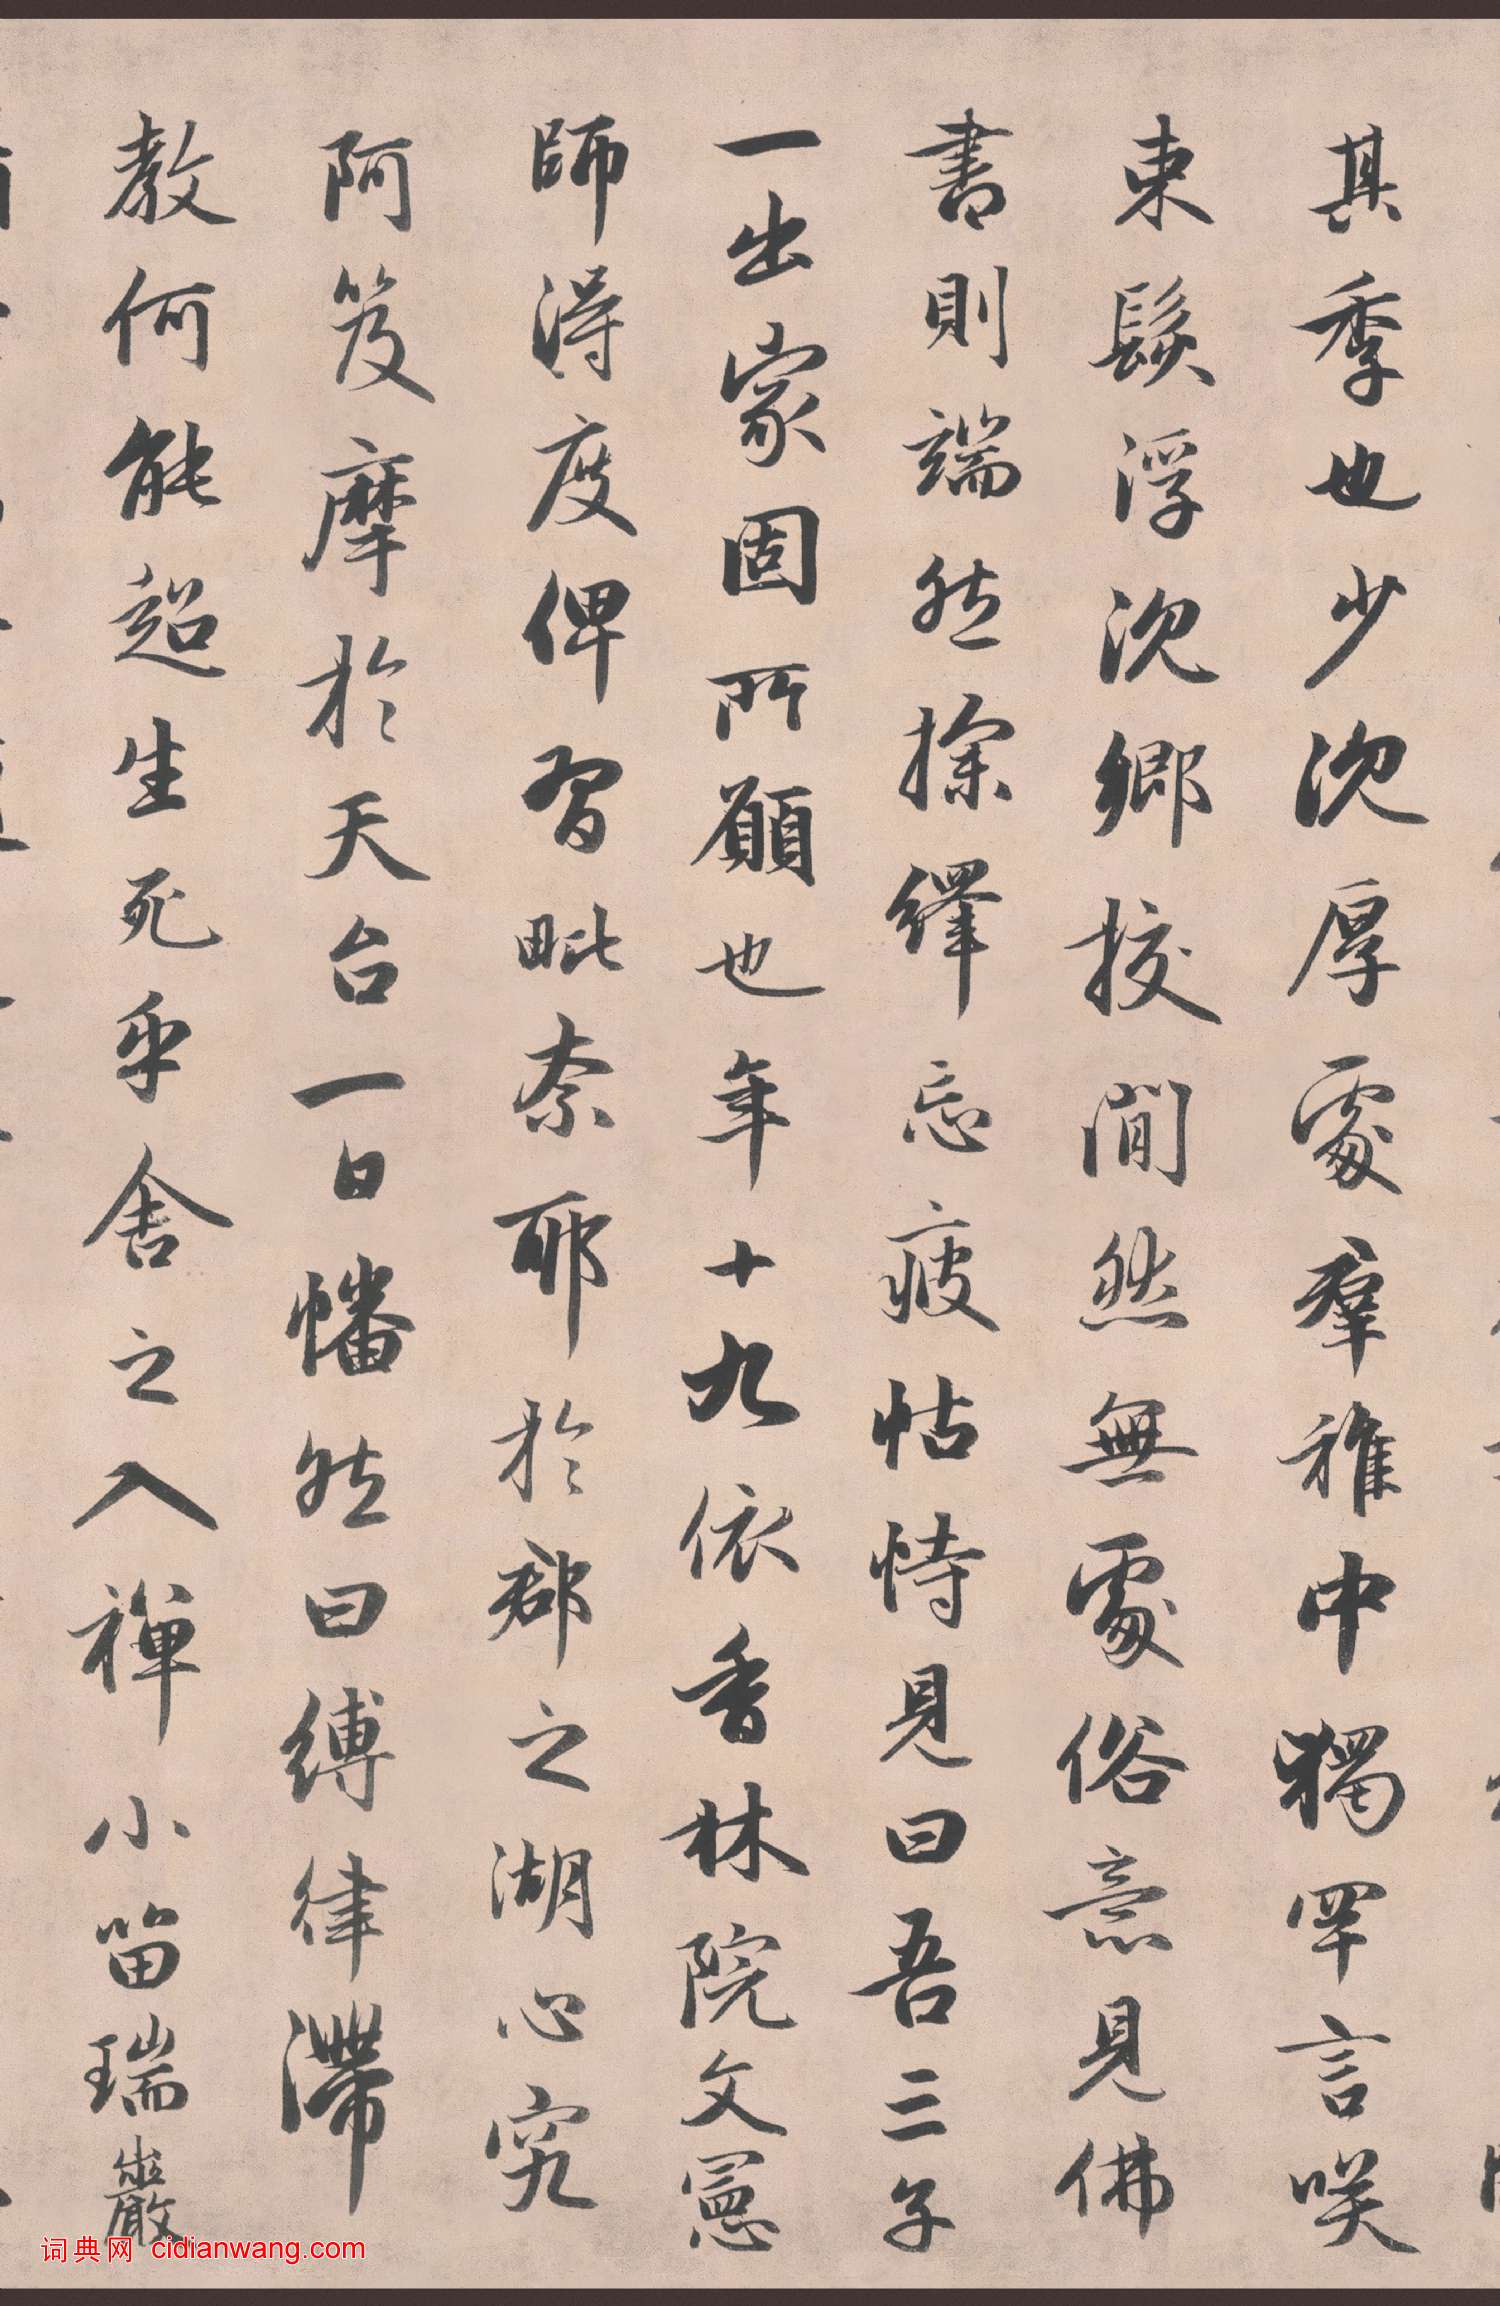 其季也少沉厚處羣稚中獨罕言咲
束髮浮沉鄉校閒然無處俗意見佛
書則端然探繹忘疲怙恃見曰吾三子
一出家固所願也年十九依香林院文憲
師得度俾習毗奈耶於郡之湖心究
阿笈摩於天台一日幡然曰縛律滯
教何能超生死乎舍之入禪小留瑞巖
词典网 cidianwang.com